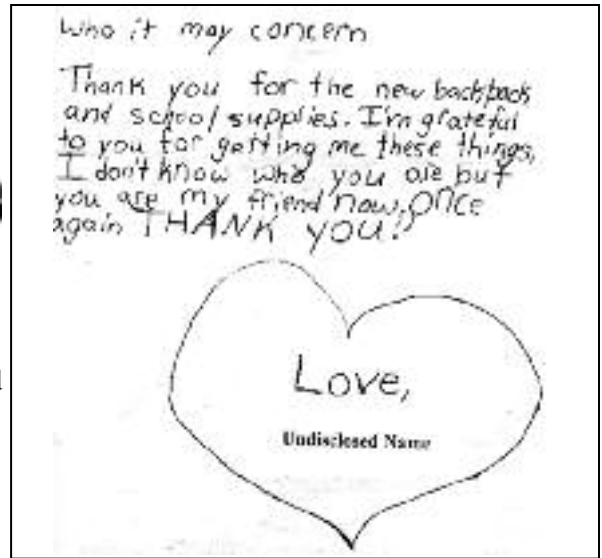 Who it may concern
Thank you for the new backpack
and school supplies. I'm grateful
to you for getting me these things,
I don't know who you are but
you are my friend now, Once
again THANK YOU!
Love,
Undisclosed Name